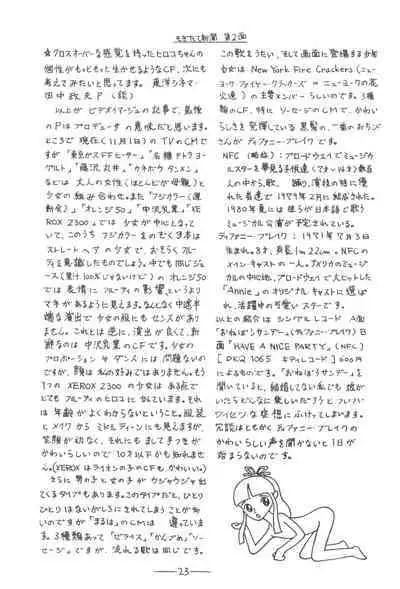 もぎたて新聞 第2面
☆クロスオーバーな感覚を持ったヒロコちゃんの
個性がもっともっと生かせるようなCF、次にも
考えてみたいと思ってます。 東洋シネマ・
田中 P(談)
以上が ビデオイマージュの記事で、最後
のPはプロデュータの意味だと思います。
ところで 現在(11月1日)のTVのCMで
すが「東急かズドヒーター」「名糖ナトラヨー
グルト」「藤沢丸井」「カネボウ
などは 大人の女性(ほとんどが母親)と
少女の組み合わせ。また「フジカラー(運
動会)」「オレンジ50」「中沢乳業」「XE
ROX 2300」では 少女が中心となって
いて、このうち フジカラーは
ストレートヘアの少女で、おそらく フルー
ティを意識したものでしょう。中でも同じジュ
ース(果汁100%じゃないけど)の オレンジ50
では 表情に フルーティの影響というより
マネがあるように見えます。なんとなく中途半
端な演出で 少女の服にもセンスがあり
ません。これとは逆に、演出が良く、新
鮮なのは 中沢乳業のCFです。少女の
プロポーション や ダンスには 問題ないの
ですが、顔は 私の好みではありません。もう
1つの XEROX 2300 の少女は ある点で
とても フルーティのヒロコに なています。それ
は 年齢がよくわからないということ。服装
と メイク から ミドルティーンにも見えますが、
笑顔が幼なく、それにもましてまつ毛が
かわいらしいので 10才以下かも知れませ
ん。(XEROXはライオンの子のCFも、かわいい。)
さらに 男の子と女の子が ウジャウジャ出
てくるタイプもあります。このタイプだと、ひとり
ひとりはないがしろにされてしまうことが多
いのですが「まるは」のCMは 違っていま
す。3種類あって「ピアキス」「かんづめ」「ソー
セージ」ですが、流れる歌は同じです。
この歌をうたい、そして画面に登場する少年
少女は New York Fire Crackers (ニュー
ヨーク・ファイヤー・クラッカーズ = ニューヨークの花
火達)の主要メンバーらしいのです。3種
類のCF、特に ソーセージのCMで、かわい
らしさを発揮している 黒髪の、一番のおちび
さんが ティファニー・ブレイクです。
NFC(略称):ブロードウェイでミュージカ
ルスターを夢見る子供達(で才〜14才)数百
人の中から、歌、踊り、演技の特に優
れた者達で 1979年2月に結成された。
1980年夏には 彼らが日本語で歌う
ミュージカル公演が予定されている。
ティファニー・ブレイク:1971年7月3日
生まれ。8才、身長1m22cm。NFCの
メインキャストの一人。アメリカのミュージ
カルの中心地、ブロードウェイで大ヒットした
「Annie」の オリジナルキャストに選ば
れ、活躍中の可愛いスターです。
以上の紹介は シングルレコード A面
「おねぼうサンデー」(ティファニー・ブレイク)B
面「HAVE A NICE PARTY」(NFC)
[DKQ 1065 キティレコード] 600円
によるものです。「おねぼうサンデー」を
聞いていると、結婚してない私でも 娘が
いたらどんなに楽しいだろうと フレフレ
ワイセツな 空想に ふけってしまいます。
冗談はともかく ティファニー・ブレイクの
かわいらしい声を聞かないと1日が
始まらないのです。
23